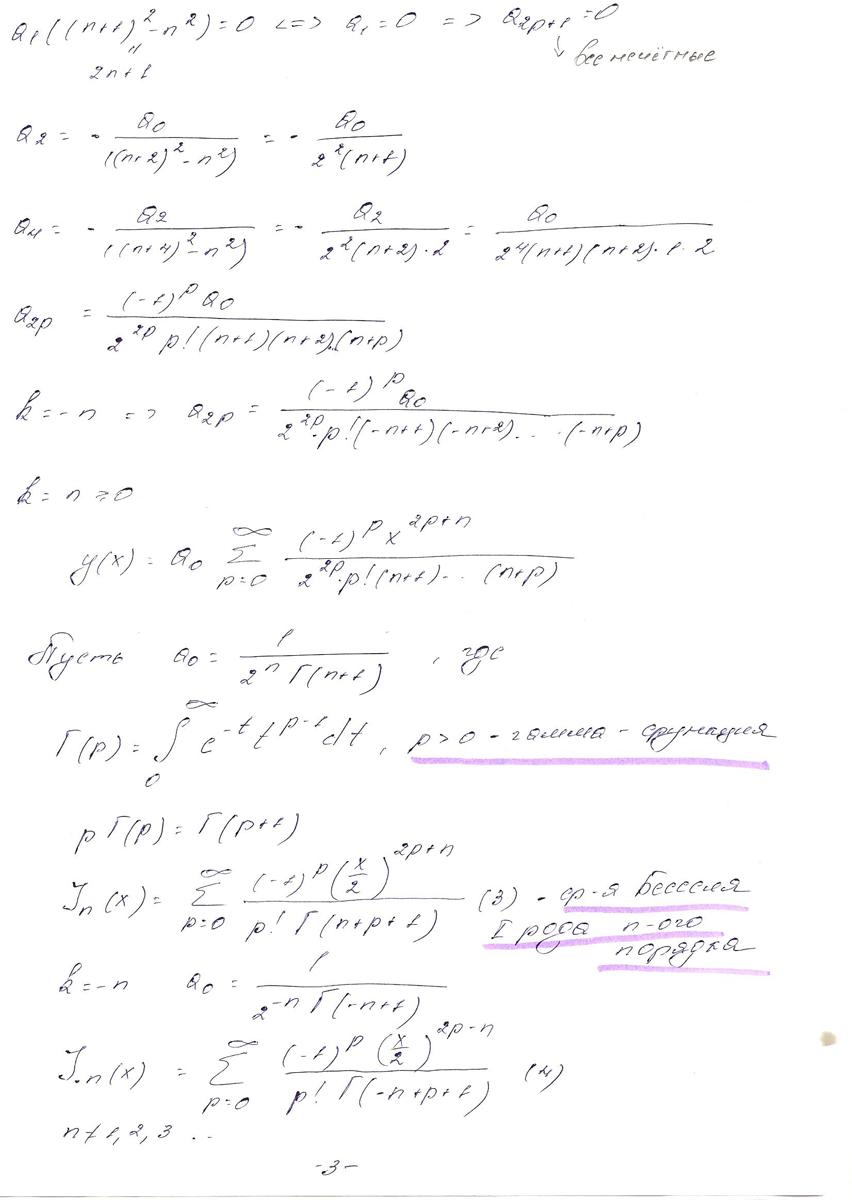 a₁((n+1)² - n²) = 0 <=> a₁ = 0 => a₂ₚ₊₁ = 0
" ↓ все нечётные
2n+1
a₂ = - a₀ / ((n+2)² - n²) = - a₀ / 2²(n+1)
a₄ = - a₂ / ((n+4)² - n²) = - a₂ / 2²(n+2)·2 = a₀ / 2⁴(n+1)(n+2)·1·2
a₂ₚ = (-1)ᵖ a₀ / 2²ᵖ p! (n+1)(n+2)..(n+p)
k = -n => a₂ₚ = (-1)ᵖ a₀ / 2²ᵖ·p! (-n+1)(-n+2)·...·(-n+p)
k = n ≥ 0
y(x) = a₀ ∑_{p=0}^{∞} (-1)ᵖ x²ᵖ⁺ⁿ / 2²ᵖ·p! (n+1)... (n+p)
Пусть a₀ = 1 / 2ⁿ Г(n+1) , где
Г(p) = ∫₀^∞ e⁻ᵗ tᵖ⁻¹ dt , p>0 - гамма - функция
p Г(p) = Г(p+1)
Jₙ(x) = ∑_{p=0}^{∞} (-1)ᵖ (x/2)²ᵖ⁺ⁿ / p! Г(n+p+1) (3) - ф-я Бесселя
I рода n-ого
порядка
k = -n a₀ = 1 / 2⁻ⁿ Г(-n+1)
J₋ₙ(x) = ∑_{p=0}^{∞} (-1)ᵖ (x/2)²ᵖ⁻ⁿ / p! Г(-n+p+1) (4)
n ≠ 1, 2, 3 ...
-3-